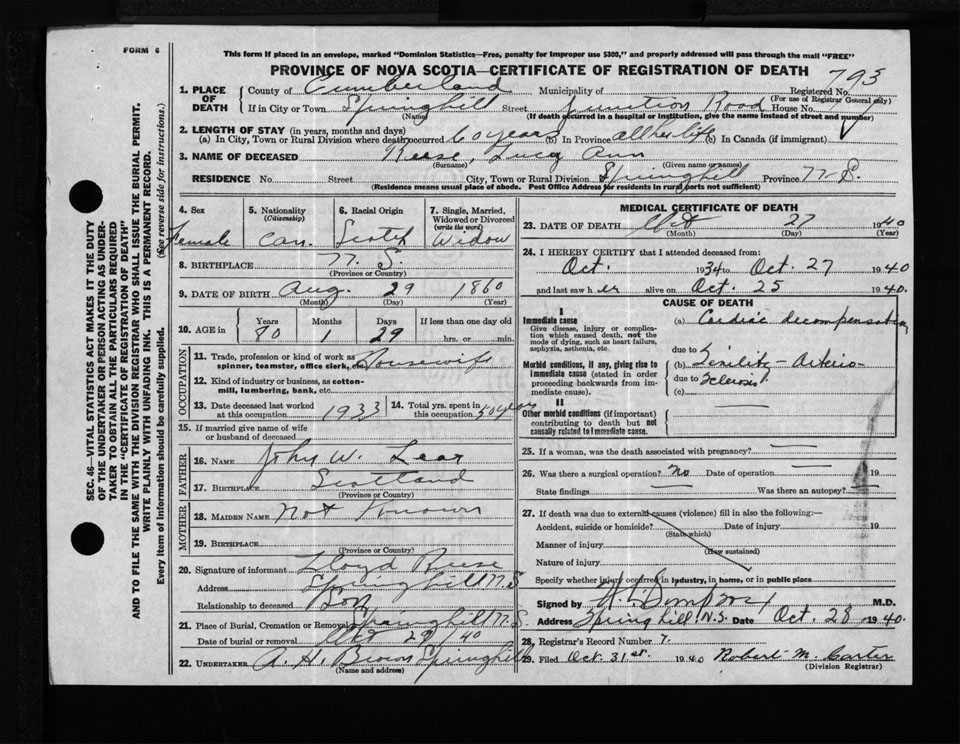 FORM 6
This form if placed in an envelope, marked "Dominion Statistics—Free, penalty for improper use $300," and properly addressed will pass through the mail "FREE"
PROVINCE OF NOVA SCOTIA—CERTIFICATE OF REGISTRATION OF DEATH
793
1. PLACE OF DEATH
County of Cumberland Municipality of Registered No.
(For use of Registrar General only)
If in City or Town Springhill Street Junction Road House No.
(Name) (If death occurred in a hospital or institution, give the name instead of street and number)
2. LENGTH OF STAY (in years, months and days)
(a) In City, Town or Rural Division where death occurred 60 years (b) In Province all her life (c) In Canada (if immigrant)
3. NAME OF DECEASED Reese, Lucy Ann
(Surname) (Given name or names)
RESIDENCE No. Street City, Town or Rural Division Springhill Province N.S.
(Residence means usual place of abode. Post Office Address for residents in rural parts not sufficient)
4. Sex Female
5. Nationality (Citizenship) Can.
6. Racial Origin Scotch
7. Single, Married, Widowed or Divorced (write the word) Widow
8. BIRTHPLACE N.S.
(Province or Country)
9. DATE OF BIRTH Aug. 29 1860
(Month) (Day) (Year)
10. AGE in Years Months Days If less than one day old
80 1 29 hrs. or min.
OCCUPATION
11. Trade, profession or kind of work as spinner, teamster, office clerk, etc. Housewife
12. Kind of industry or business, as cotton-mill, lumbering, bank, etc.
13. Date deceased last worked at this occupation 1933
14. Total yrs. spent in this occupation 50 years
15. If married give name of wife or husband of deceased
FATHER
16. NAME John W. Lear
17. BIRTHPLACE Scotland
(Province or Country)
MOTHER
18. MAIDEN NAME Not Known
19. BIRTHPLACE
(Province or Country)
20. Signature of informant Lloyd Reese
Address Springhill N.S
Relationship to deceased Son
21. Place of Burial, Cremation or Removal Springhill N.S.
Date of burial or removal Oct 29/40
22. UNDERTAKER A. H. Brown Springhill
(Name and address)
MEDICAL CERTIFICATE OF DEATH
23. DATE OF DEATH Oct 27 1940
(Month) (Day) (Year)
24. I HEREBY CERTIFY that I attended deceased from:
Oct. 1934 to Oct. 27 1940
and last saw her alive on Oct. 25 1940.
CAUSE OF DEATH
I
Immediate cause
Give disease, injury or complication which caused death, not the mode of dying, such as heart failure, asphyxia, asthenia, etc.
(a) Cardiac decompensation
due to
Morbid conditions, if any, giving rise to immediate cause (stated in order proceeding backwards from immediate cause).
(b) Senility - Arterio-
due to sclerosis
(c)
II
Other morbid conditions (if important) contributing to death but not causally related to immediate cause.
25. If a woman, was the death associated with pregnancy?
26. Was there a surgical operation? No Date of operation 19
State findings Was there an autopsy?
27. If death was due to external causes (violence) fill in also the following:—
Accident, suicide or homicide? Date of injury 19
(State which)
Manner of injury
(How sustained)
Nature of injury
Specify whether injury occurred in industry, in home, or in public place
Signed by M.D.
Address Springhill N.S. Date Oct. 28 1940
28. Registrar's Record Number 7.
29. Filed Oct 31st. 1940 Robert M. Carter
(Division Registrar)
SEC. 46—VITAL STATISTICS ACT MAKES IT THE DUTY
OF THE UNDERTAKER OR PERSON ACTING AS UNDER-
TAKER TO OBTAIN ALL THE PARTICULARS REQUIRED
IN THE "CERTIFICATE OF REGISTRATION OF DEATH"
AND TO FILE THE SAME WITH THE DIVISION REGISTRAR WHO SHALL ISSUE THE BURIAL PERMIT.
WRITE PLAINLY WITH UNFADING INK. THIS IS A PERMANENT RECORD.
Every item of information should be carefully supplied. (See reverse side for instructions.)